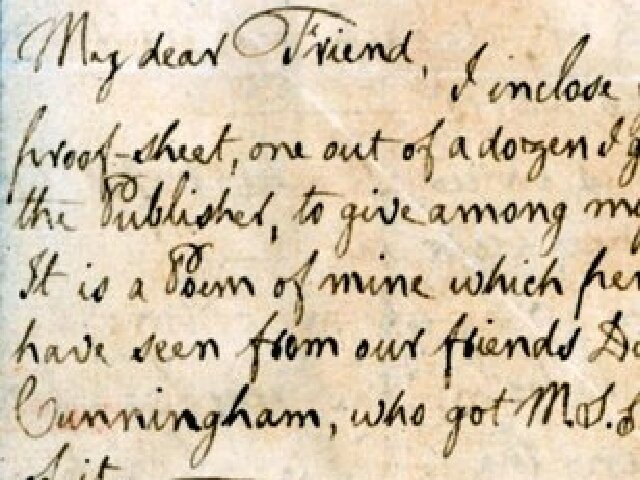 My dear Friend,
I inclose
proof-sheet, one out of a dozen I g
the Publisher, to give among my
It is a Poem of mine which per
have seen from our friends D
Cunningham, who got M.S.
of it